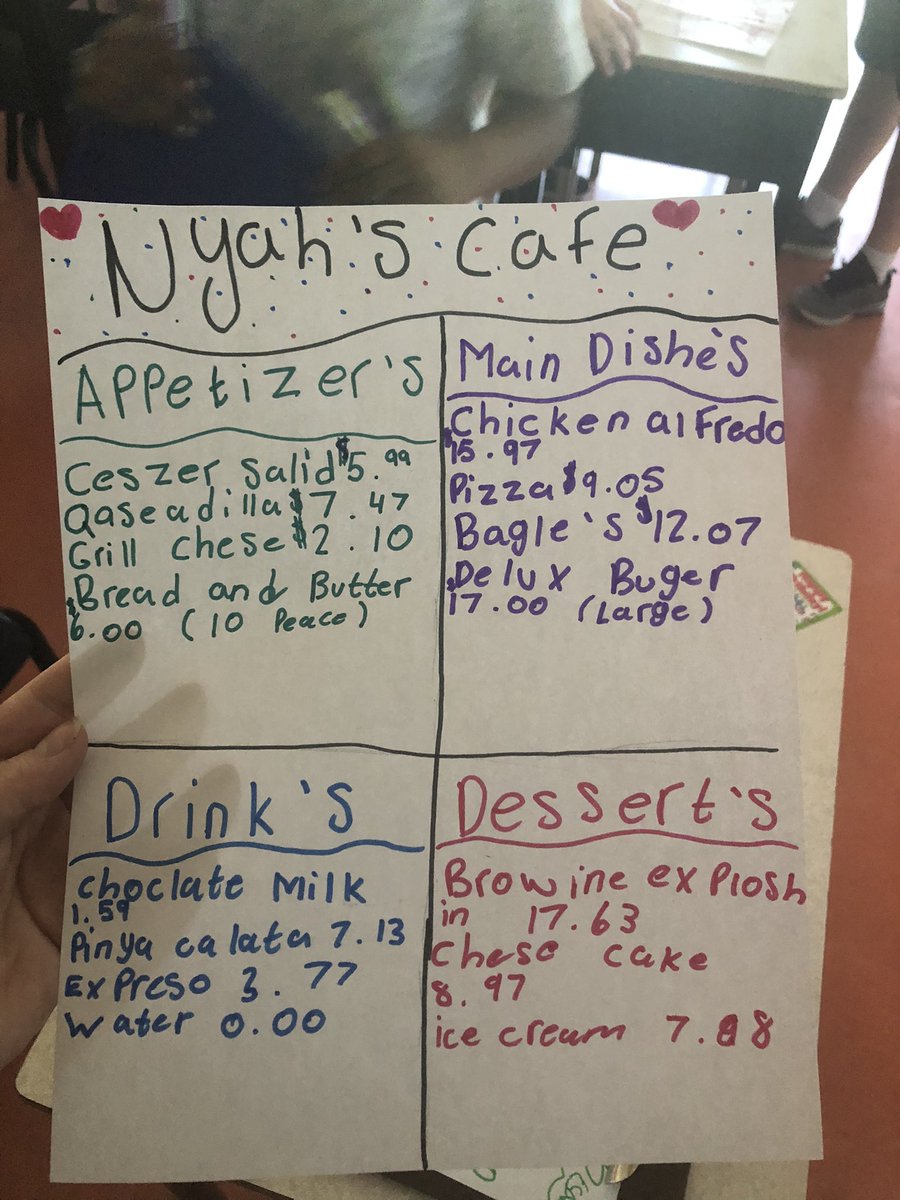 Nyah's Cafe
Appetizer's
Ceszer salid $5.99
Qaseadilla $7.47
Grill chese $2.10
Bread and Butter
$6.00 (10 Peace)
Main Dishe's
Chicken alfredo
$15.97
Pizza $9.05
Bagle's $12.07
Delux Buger
$17.00 (Large)
Drink's
choclate milk
1.59
Pinya calata 7.13
Expreso 3.77
water 0.00
Dessert's
Browine explosh
in 17.63
Chese cake
8.97
ice cream 7.08